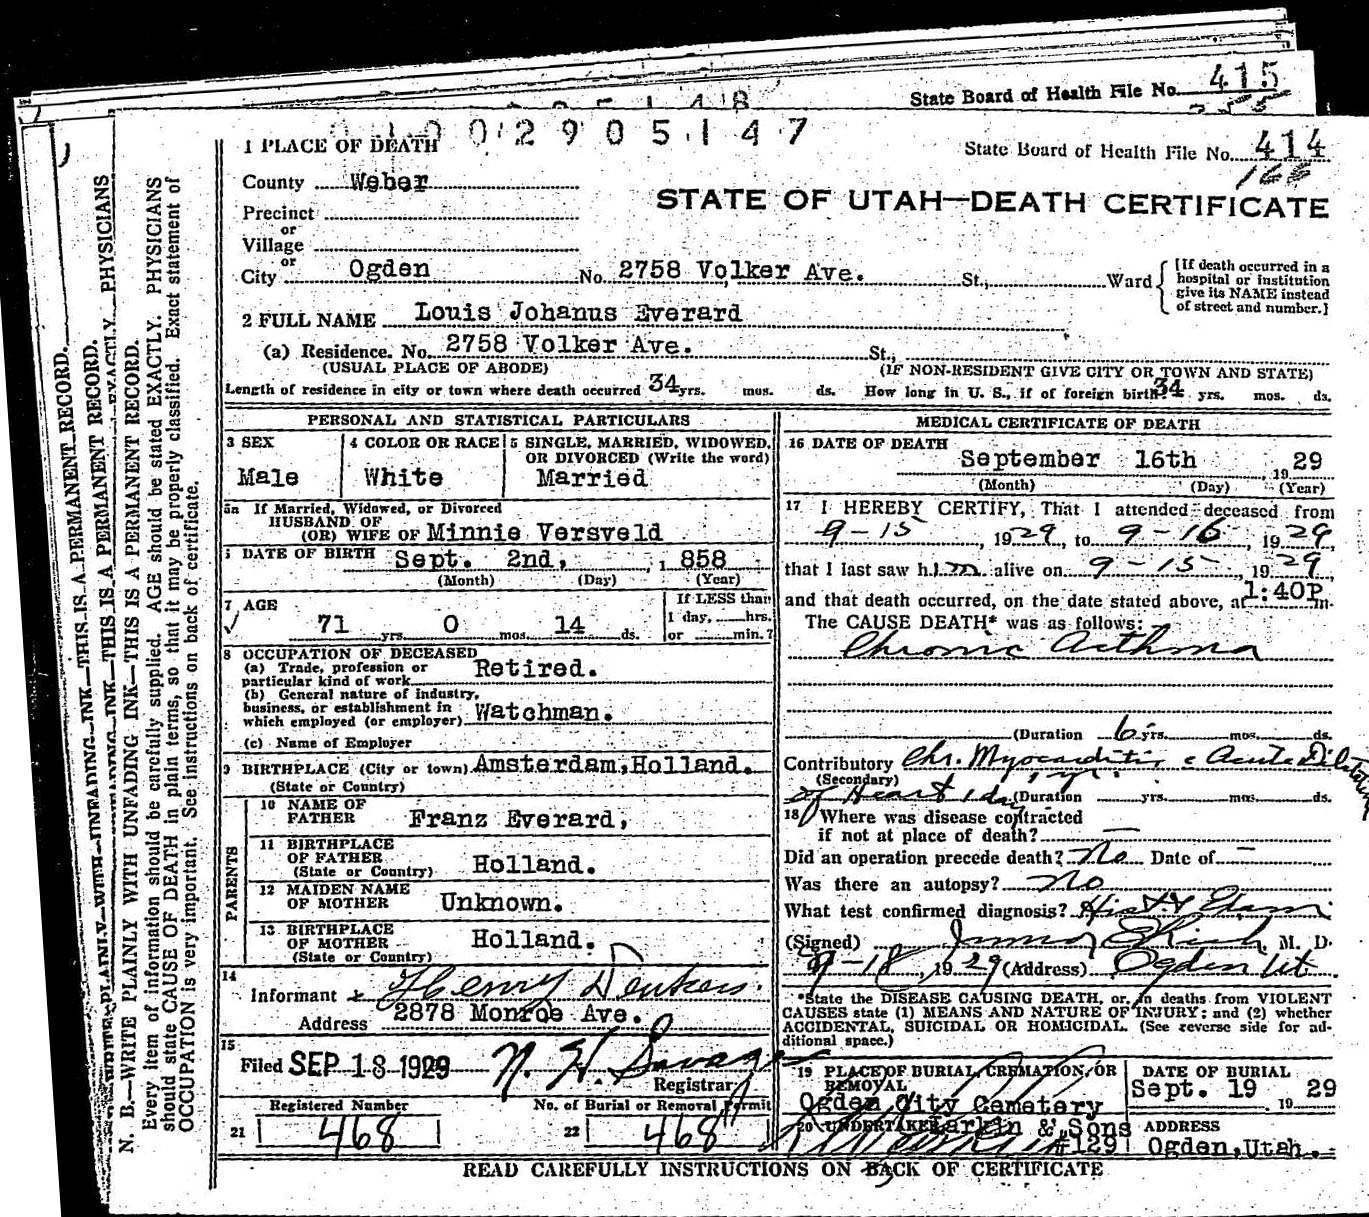 State Board of Health File No. 415
0 1 0 0 2 9 0 5 1 4 7
1 PLACE OF DEATH
State Board of Health File No. 414
166
County Weber
STATE OF UTAH—DEATH CERTIFICATE
Precinct
or
Village
or
City Ogden No. 2758 Volker Ave. St., Ward
[If death occurred in a
hospital or institution
give its NAME instead
of street and number.]
2 FULL NAME Louis Johanus Everard
(a) Residence. No. 2758 Volker Ave. St.,
(USUAL PLACE OF ABODE) (IF NON-RESIDENT GIVE CITY OR TOWN AND STATE)
Length of residence in city or town where death occurred 34 yrs. mos. ds. How long in U. S., if of foreign birth? 34 yrs. mos. ds.
PERSONAL AND STATISTICAL PARTICULARS
3 SEX
Male
4 COLOR OR RACE
White
5 SINGLE, MARRIED, WIDOWED,
OR DIVORCED (Write the word)
Married
5a If Married, Widowed, or Divorced
HUSBAND OF
(OR) WIFE OF Minnie Versveld
DATE OF BIRTH Sept. 2nd, 1858
(Month) (Day) (Year)
7 AGE
71 yrs. 0 mos. 14 ds.
If LESS than
1 day, hrs.
or min.?
8 OCCUPATION OF DECEASED
(a) Trade, profession or
particular kind of work Retired.
(b) General nature of industry,
business, or establishment in
which employed (or employer) Watchman.
(c) Name of Employer
9 BIRTHPLACE (City or town) Amsterdam, Holland.
(State or Country)
PARENTS
10 NAME OF
FATHER Franz Everard,
11 BIRTHPLACE
OF FATHER
(State or Country) Holland.
12 MAIDEN NAME
OF MOTHER Unknown.
13 BIRTHPLACE
OF MOTHER
(State or Country) Holland.
14
Informant Henry Denkers
Address 2878 Monroe Ave.
15
Filed SEP 18 1929 N. H. Savage
Registrar
Registered Number No. of Burial or Removal Permit
21 468 22 468
MEDICAL CERTIFICATE OF DEATH
16 DATE OF DEATH
September 16th, 1929
(Month) (Day) (Year)
17 I HEREBY CERTIFY, That I attended deceased from
9-15, 1929, to 9-16, 1929,
that I last saw him alive on 9-15, 1929,
and that death occurred, on the date stated above, at 1:40P m.
The CAUSE DEATH* was as follows:
Chronic Asthma
(Duration 6 yrs. mos. ds.
Contributory Chr. Myocarditis c Acute Dilatation
(Secondary) 1 yr.
of Heart 1 day (Duration yrs. mos. ds.
18 Where was disease contracted
if not at place of death? —
Did an operation precede death? No Date of —
Was there an autopsy? No
What test confirmed diagnosis? Hist & Exam
(Signed) M. D.
9-18, 1929 (Address) Ogden Ut.
*State the DISEASE CAUSING DEATH, or, in deaths from VIOLENT
CAUSES state (1) MEANS AND NATURE OF INJURY; and (2) whether
ACCIDENTAL, SUICIDAL OR HOMICIDAL. (See reverse side for ad-
ditional space.)
19 PLACE OF BURIAL, CREMATION, OR
REMOVAL
Ogden City Cemetery
DATE OF BURIAL
Sept. 19, 1929
20 UNDERTAKER Larkin & Sons
#129
ADDRESS
Ogden, Utah.
READ CAREFULLY INSTRUCTIONS ON BACK OF CERTIFICATE
N. B.—WRITE PLAINLY WITH UNFADING INK—THIS IS A PERMANENT RECORD.
Every item of information should be carefully supplied. AGE should be stated EXACTLY. PHYSICIANS
should state CAUSE OF DEATH in plain terms, so that it may be properly classified. Exact statement of
OCCUPATION is very important. See instructions on back of certificate.